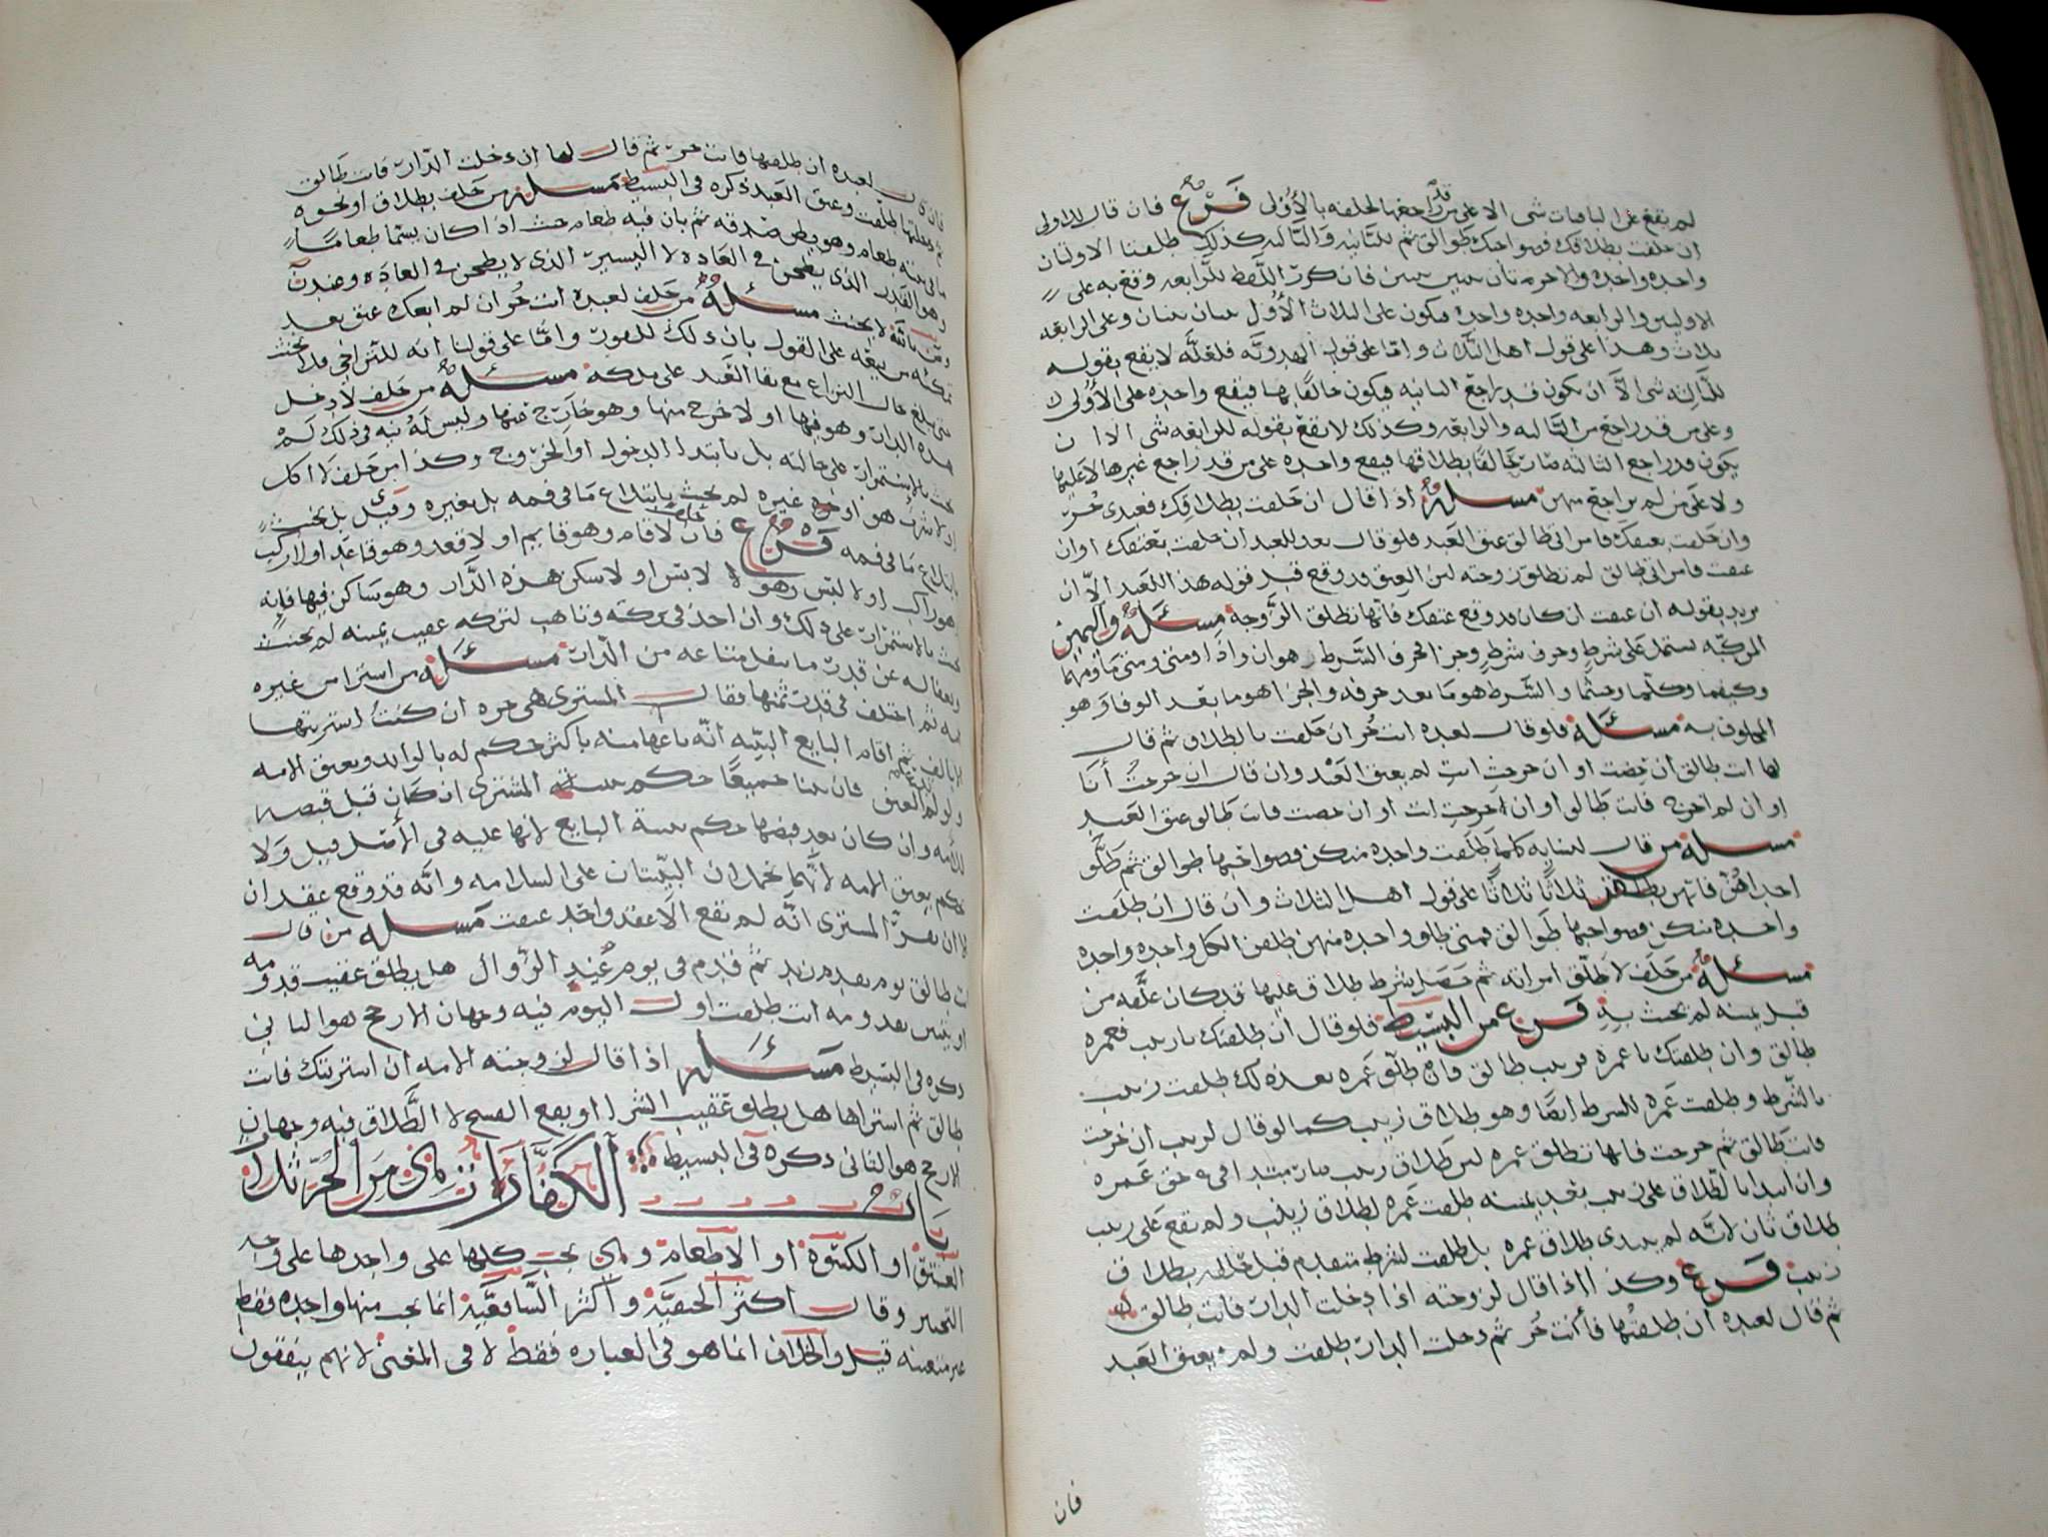 لم يقع على الباقيات شي الا على من قد راجعها لحلفه بالأولى فرع فان قال للاولى
ان حلفت بطلاقك فصواحبك طوالق ثم للثانيه والثالثه كذلك طلقتا الاولتان
واحده واحده والاخرتان فان كرر اللفظ للرابعه وقع به على
الاوليين والرابعه واحده واحده فيكون على الثلاث الأول وعلى الرابعه
ثلاث وهذا على قول اهل الثلاث واما على قول الهدويه فلعله لا يقع بقوله
للثالثه شي الا ان يكون قد راجع الثانيه فيكون حالفا بها فيقع واحده على الأولى
وعلى من قد راجع من الثالثه والرابعه وكذلك لا يقع بقوله للرابعه شي الا ان
يكون قد راجع الثالثه بطلاقها فيقع واحده على من قد راجع غيرها لا عليها
ولا على من لم يراجع منهن مسئلة اذا قال ان حلفت بطلاقك فعبدى حر
وان حلفت بعتقك فامراتى طالق عتق العبد فلو قال بعد للعبد ان حلفت بعتقك او ان
عتقت فامراتى طالق لم تطلق زوجته لان العتق قد وقع قبل قوله هذا للعبد الا ان
يريد بقوله ان عتقت ان كان قد وقع عتقك فانها تطلق الزوجة مسئلة واليمين
المركبه تشتمل على شرط وحرف شرط وجزا فحرف الشرط هو ان واذا ومتى ومتى ما ومهما
وكيفما وكلما وحيثما والشرط هو ما بعد حرفه والجزا هو ما بعد الفا وهو
المحلوف به مسئلة فلو قال لعبده انت حر ان حلفت بالطلاق ثم قال
لها انت طالق ان حضت او ان خرجت انت لم يعتق العبد وان قال ان خرجت أنا
او ان لم اخرج فانت طالق او ان خرجت انت او ان حضت فانت طالق عتق العبد
مسئلة من قال لنسايه كلما طلقت واحده منكن فصواحبها طوالق ثم طلق
احداهن فانهن يطلقن ثلاثا ثلاثا على قول اهل الثلاث وان قال ان طلقت
واحده منكن فصواحبها طوالق فمتى طلق واحده منهن طلقن الكل واحده واحده
مسئلة من حلف لا طلق امراته ثم حصل شرط طلاق عليها قد كان علقه من
قبل يمينه لم يحنث به فرع من البسيط فلو قال ان طلقتك يا زينب فعمره
طالق وان طلقتك يا عمره فزينب طالق فان طلق عمره بعد ذلك طلقت زينب
بالشرط وطلقت عمره للشرط ايضا وهو طلاق زينب كما لو قال لزينب ان خرجت
فانت طالق ثم خرجت فانها تطلق عمره لان طلاق زينب صار مبتدا فى حق عمره
وان ابتدا بالطلاق على زينب بعد يمينه طلقت عمره لطلاق زينب ولم يقع على زينب
طلاق ثان لانه لم يبتدى طلاق عمره بل طلقت لشرط متقدم قبل حلفه بطلاق
زينب فرع وكذا اذا قال لزوجته اذا دخلت الدار فانت طالق
ثم قال لعبده ان طلقتها فأنت حر ثم دخلت الدار طلقت ولم يعتق العبد
فان
فان قال لعبده ان طلقتها فانت حر ثم قال لها ان دخلت الدار فانت طالق
ثم دخلتها طلقت وعتق العبد ذكره في البسيط مسئلة من حلف بطلاق او نحوه
ما فى بيته طعام وهو يظن صدقه ثم بان فيه طعام حنث اذا كان يسما طعاما
وهو القدر الذى يطحن في العاده لا اليسير الذى لا يطحن في العاده
لا يحنث مسئلة من حلف لعبده انت حر ان لم ابعك عتق بعد
تمكنه من بيعه على القول بان ذلك للفور واما على قولنا انه للتراخى فلا يحنث
حتى يبلغ حال النزاع مع بقا العبد على ملكه مسئلة من حلف لا دخل
هذه الدار وهو فيها او لا خرج منها وهو خارج عنها وليس له نيه فى ذلك لم
يحنث بالاستمرار على حالته بل بابتدا الدخول او الخروج وكذا من حلف لا اكل
او لا شرب هو او غيره لم يحنث بابتلاع ما فى فمه بل بغيره وقيل بل يحنث
بابتلاع ما فى فمه فرع فان لا قام وهو قايم او لا قعد وهو قاعد او لا ركب
وهو راكب او لا لبس وهو لابس او لا سكن هذه الدار وهو ساكن فيها فانه
يحنث بالاستمرار على ذلك وان اخذ فى تركه وتاهب لتركه عقيب يمينه لم يحنث
ويعفا له عن قدر ما ينقل متاعه من الدار مسئلة من اشترا من غيره
امه ثم اختلف فى قدر ثمنها فقال المشترى هى حره ان كنت اشتريتها
الا بالف ثم اقام البايع البينه انه باعها منه باكثر حكم له بالزايد وبعتق الامه
فان بينا جميعا حكم ببينة المشترى ان كان قبل قبضه
للامه وان كان بعد قبضها حكم ببينة البايع لانها عليه فى الأصل قيل ولا
يحكم بعتق الامه لانهما يحملان البينتان على السلامه وانه قد وقع عقدان
الا ان يقر المشترى انه لم يقع الا عقد واحد عتقت مسئلة من قال
انت طالق يوم يقدم زيد ثم قدم في يوم عند الزوال هل يطلق عقيب قدومه
او يتبين بعد قدومه انها طلقت اول اليوم فيه وجهان الارجح هو الثاني
ذكره فى البسيط مسئلة اذا قال لزوجته الامه ان اشتريتك فانت
طالق ثم اشتراها هل يطلق عقيب الشرا او يقع الفسخ لا الطلاق فيه وجهان
الارجح هو الثانى ذكره فى البسيط
باب الكفارات هى من الحر ثلاث
العتق او الكسوة او الاطعام وهى يجب كلها على واحدها على وجه
التخيير وقال اكثر الحنفية واكثر الشافعية انما يجب منها واحده فقط
غير متعينه قيل والخلاف انما هو فى العباره فقط لا فى المعنى لانهم يتفقون